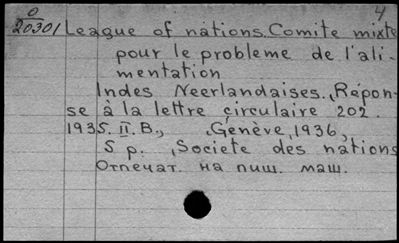 0 4
20301 League of nations. Comite mixte
pour le probleme de l'ali-
mentation
Indes Neerlandaises. Répon-
se à la lettre circulaire 202.
1935. II. B., Genève, 1936,
5 p. Societe des nations
Отпечат. на пиш. маш.